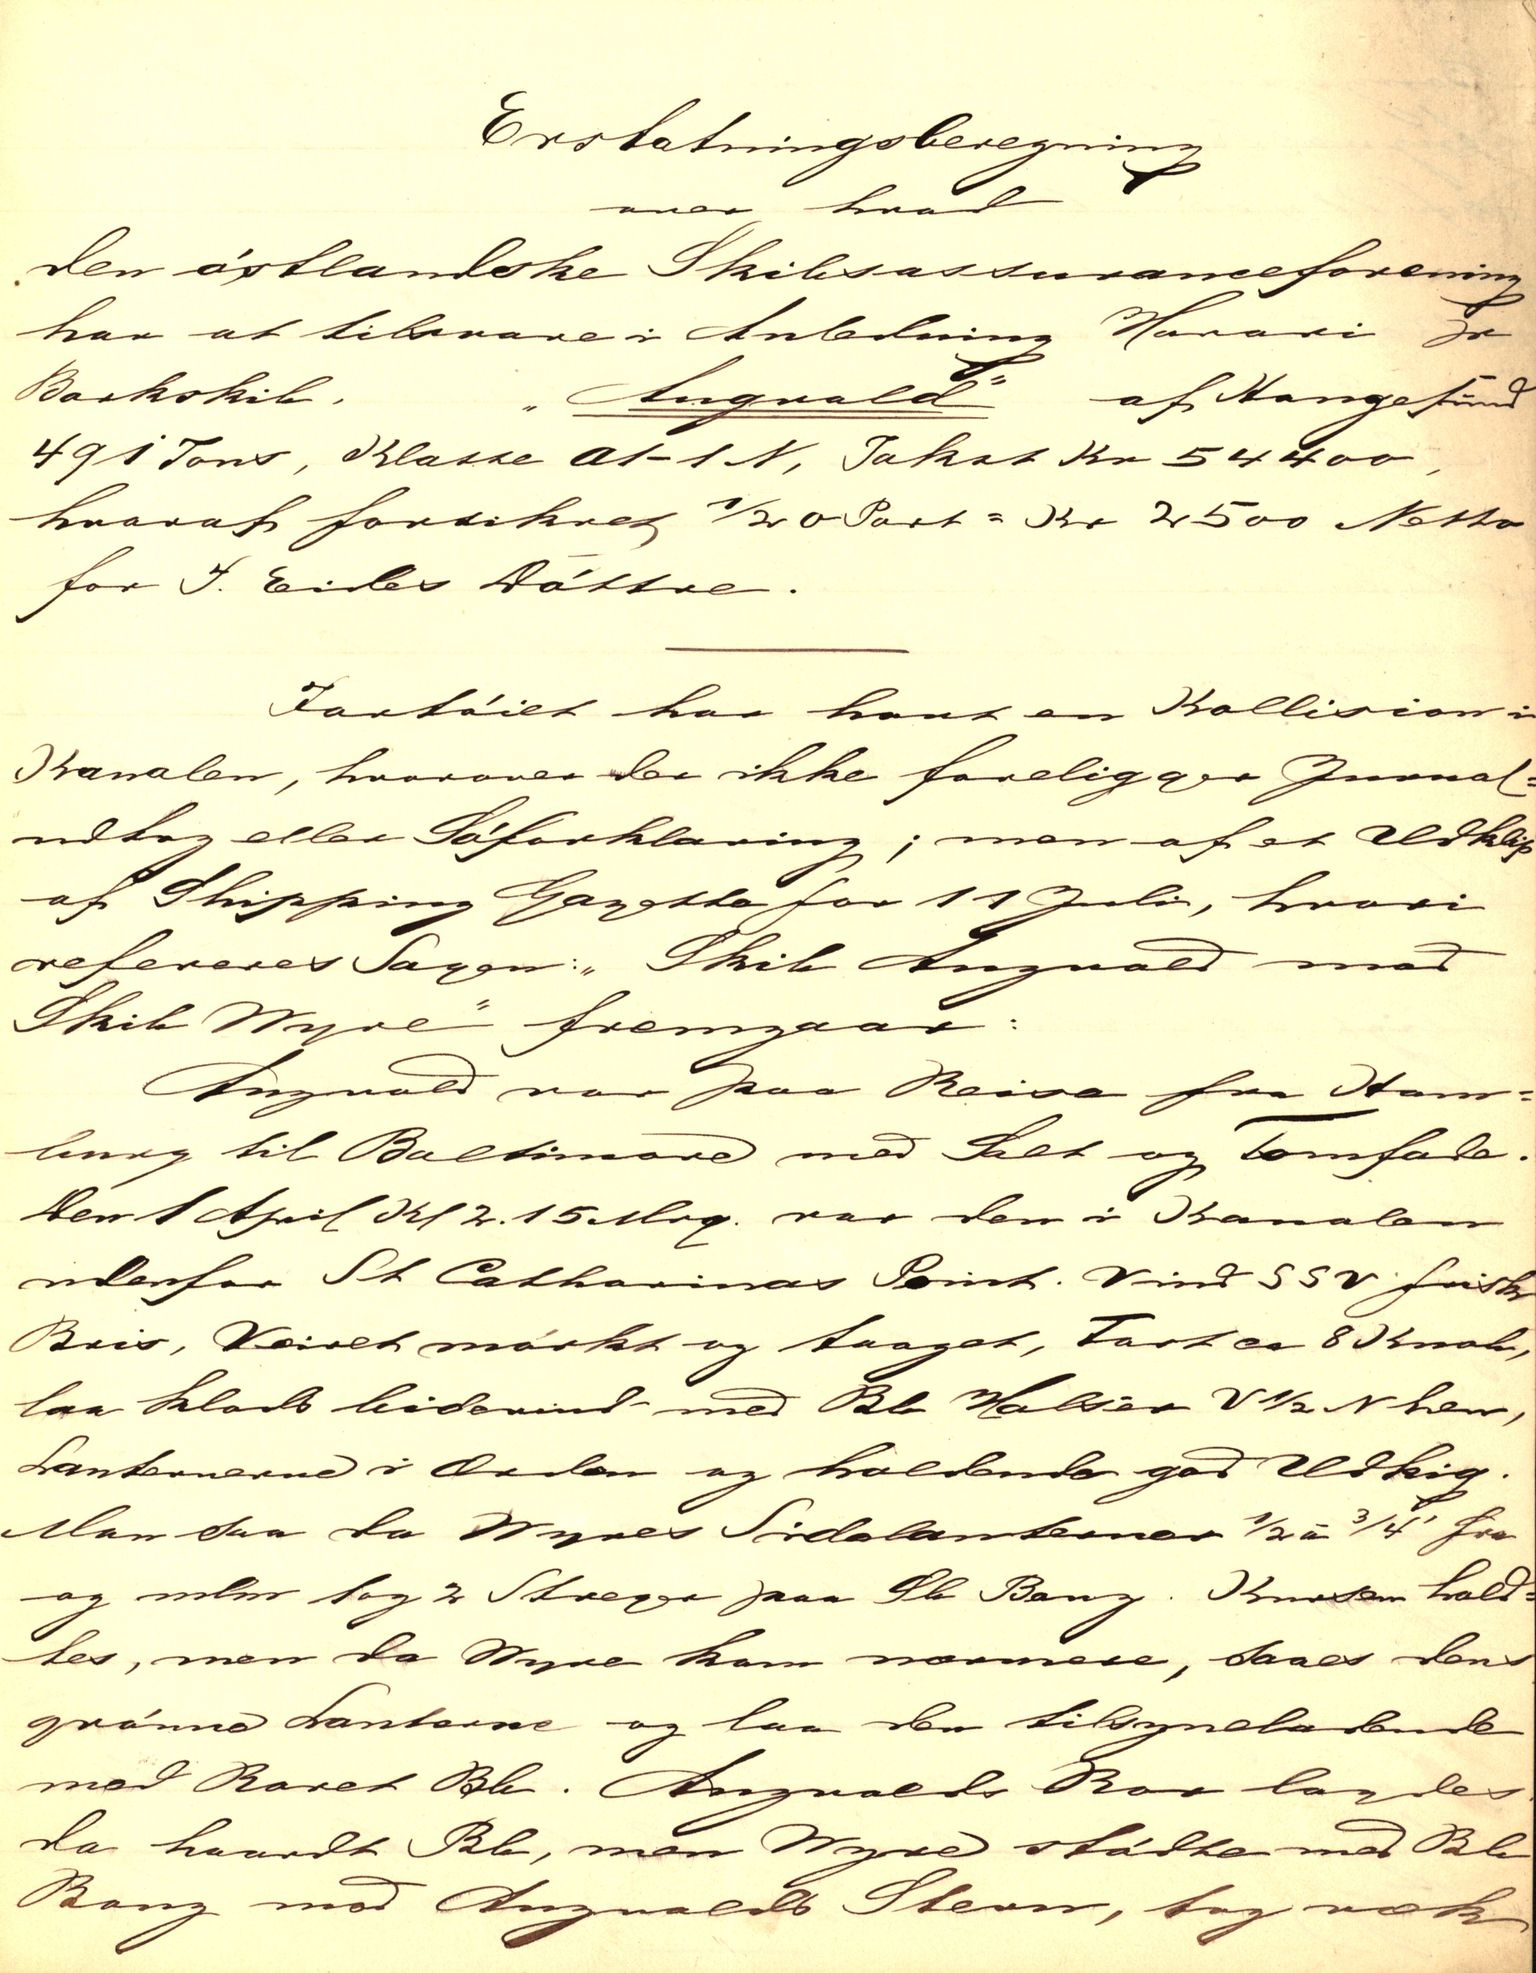 Erstatningsberegning
over hvad
den östlandske Skibsassuranceforening
har at tilsvare i Anledning Havari pr
Barkskib. „Angvald" af Haugesund
491 Tons, Klasse A1-1 N, Takst Kr 54400,
hvoraf forsikret 1/20 Part = Kr 2500 Netto
for J. Eides Döttre.
Fartöiet har havt en Kollision i
Kanalen, hvorover der ikke foreligger Jurnal=
udtog eller Söforklaring; men af et Udklip
af Shipping Gazette for 11 Juli, hvori
refereres Sagen: „Skib Angvald mod
Skib Wyre" fremgaar:
Angvald var paa Reise fra Ham=
burg til Baltimore med Salt og Tomfade.
Den 1 April Kl 2.15 Mrg. var den i Kanalen
udenfor St Catharinas Point. Vind SSV frisk
Bris, Veiret mörkt og taaget, Fart ca 8 Knob,
laa klods bidevind med Bb Halser V 1/2 N hen,
Lanternerne i Orden og holdende god Udkig.
Man saa da Wyres Sidelanterner 1/2 à 3/4' fra
og mlm tog 2 Streger paa Sb Boug. Kursen hold=
tes, men da Wyre kom nærmere, saaes dens
grönne Lanterne og laa den tilsyneladende
med Roret Bb. Angvalds Ror lagdes
da haardt Bb, men Wyre stödte med Bb
Boug mod Angvalds Stevn, tog væk